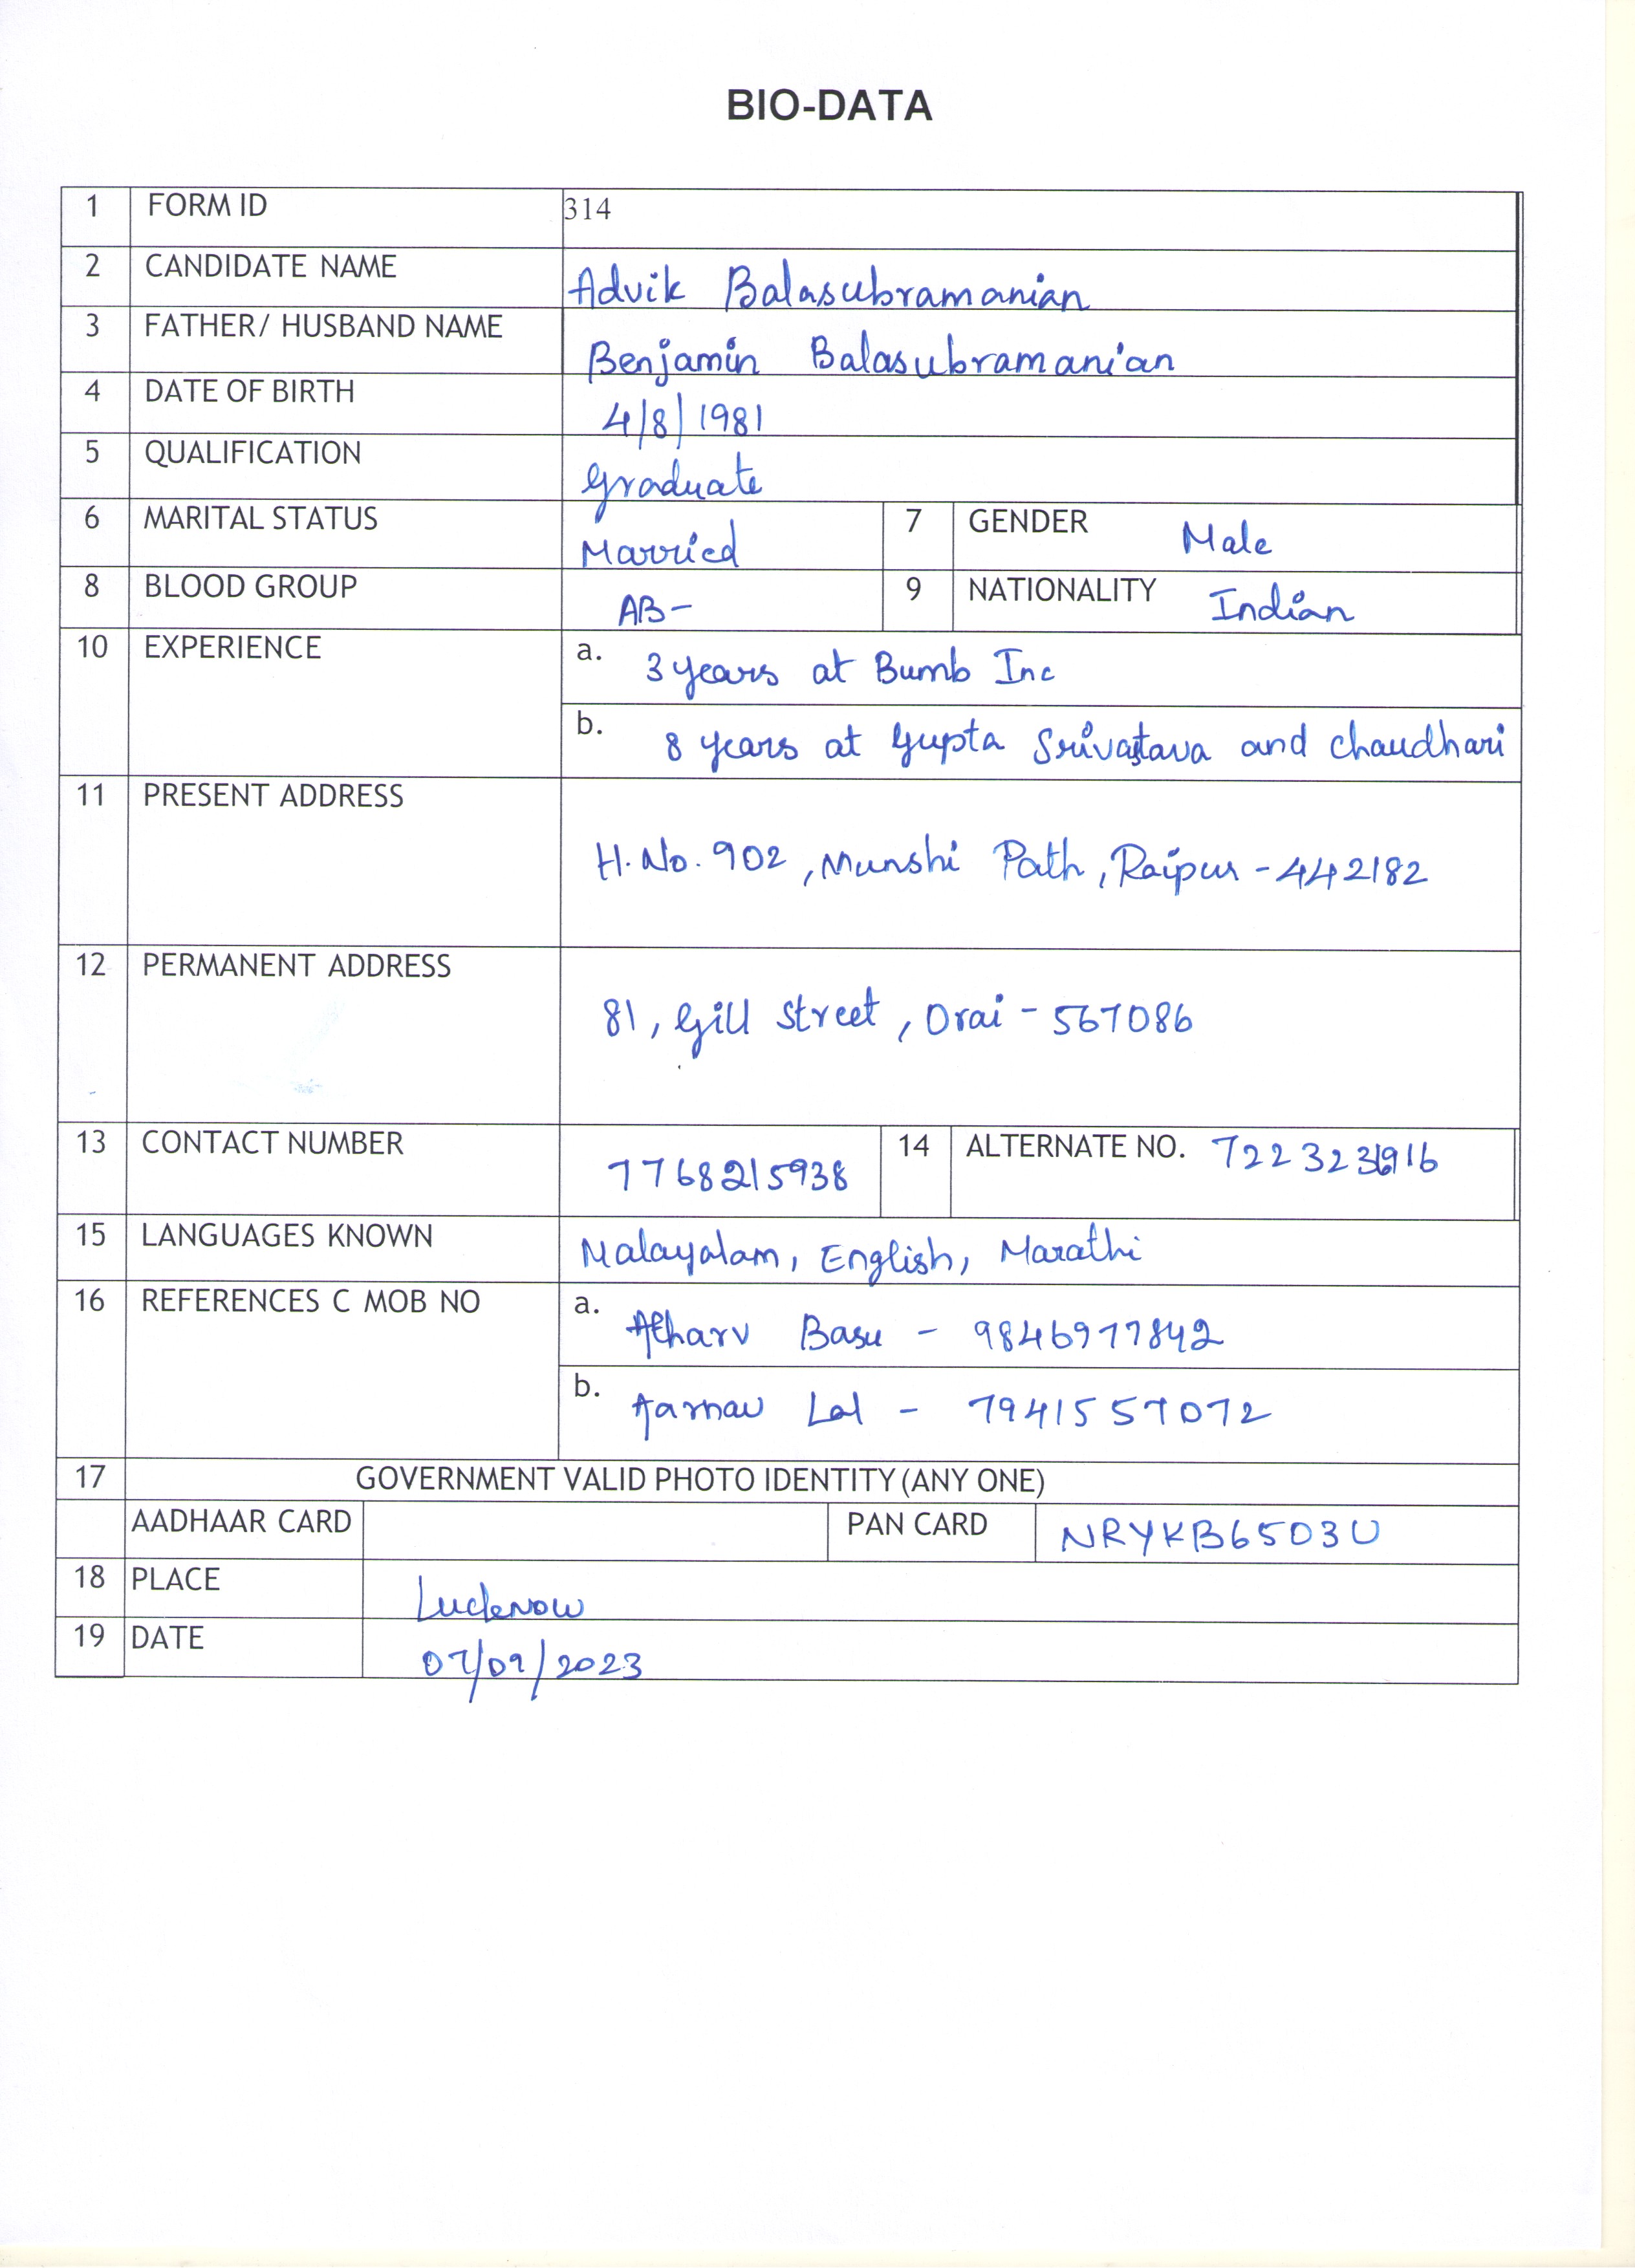 BIO-DATA
1 FORM ID 314
2 CANDIDATE NAME Advik Balasubramanian
3 FATHER/ HUSBAND NAME Benjamin Balasubramanian
4 DATE OF BIRTH 4/8/1981
5 QUALIFICATION Graduate
6 MARITAL STATUS Married 7 GENDER Male
8 BLOOD GROUP AB- 9 NATIONALITY Indian
10 EXPERIENCE a. 3 years at Bumb Inc
b. 8 years at Gupta Srivastava and Chaudhari
11 PRESENT ADDRESS
H.No. 902, Munshi Path, Raipur - 442182
12 PERMANENT ADDRESS
81, Gill Street, Orai - 567086
13 CONTACT NUMBER 7768215938 14 ALTERNATE NO.
15 LANGUAGES KNOWN Malayalam, English, Marathi
16 REFERENCES C MOB NO a. Atharv Basu - 9846977842
b. Aarnav Lal - 7941557072
17 GOVERNMENT VALID PHOTO IDENTITY (ANY ONE)
AADHAAR CARD PAN CARD NRYKB6503U
18 PLACE Lucknow
19 DATE 07/09/2023